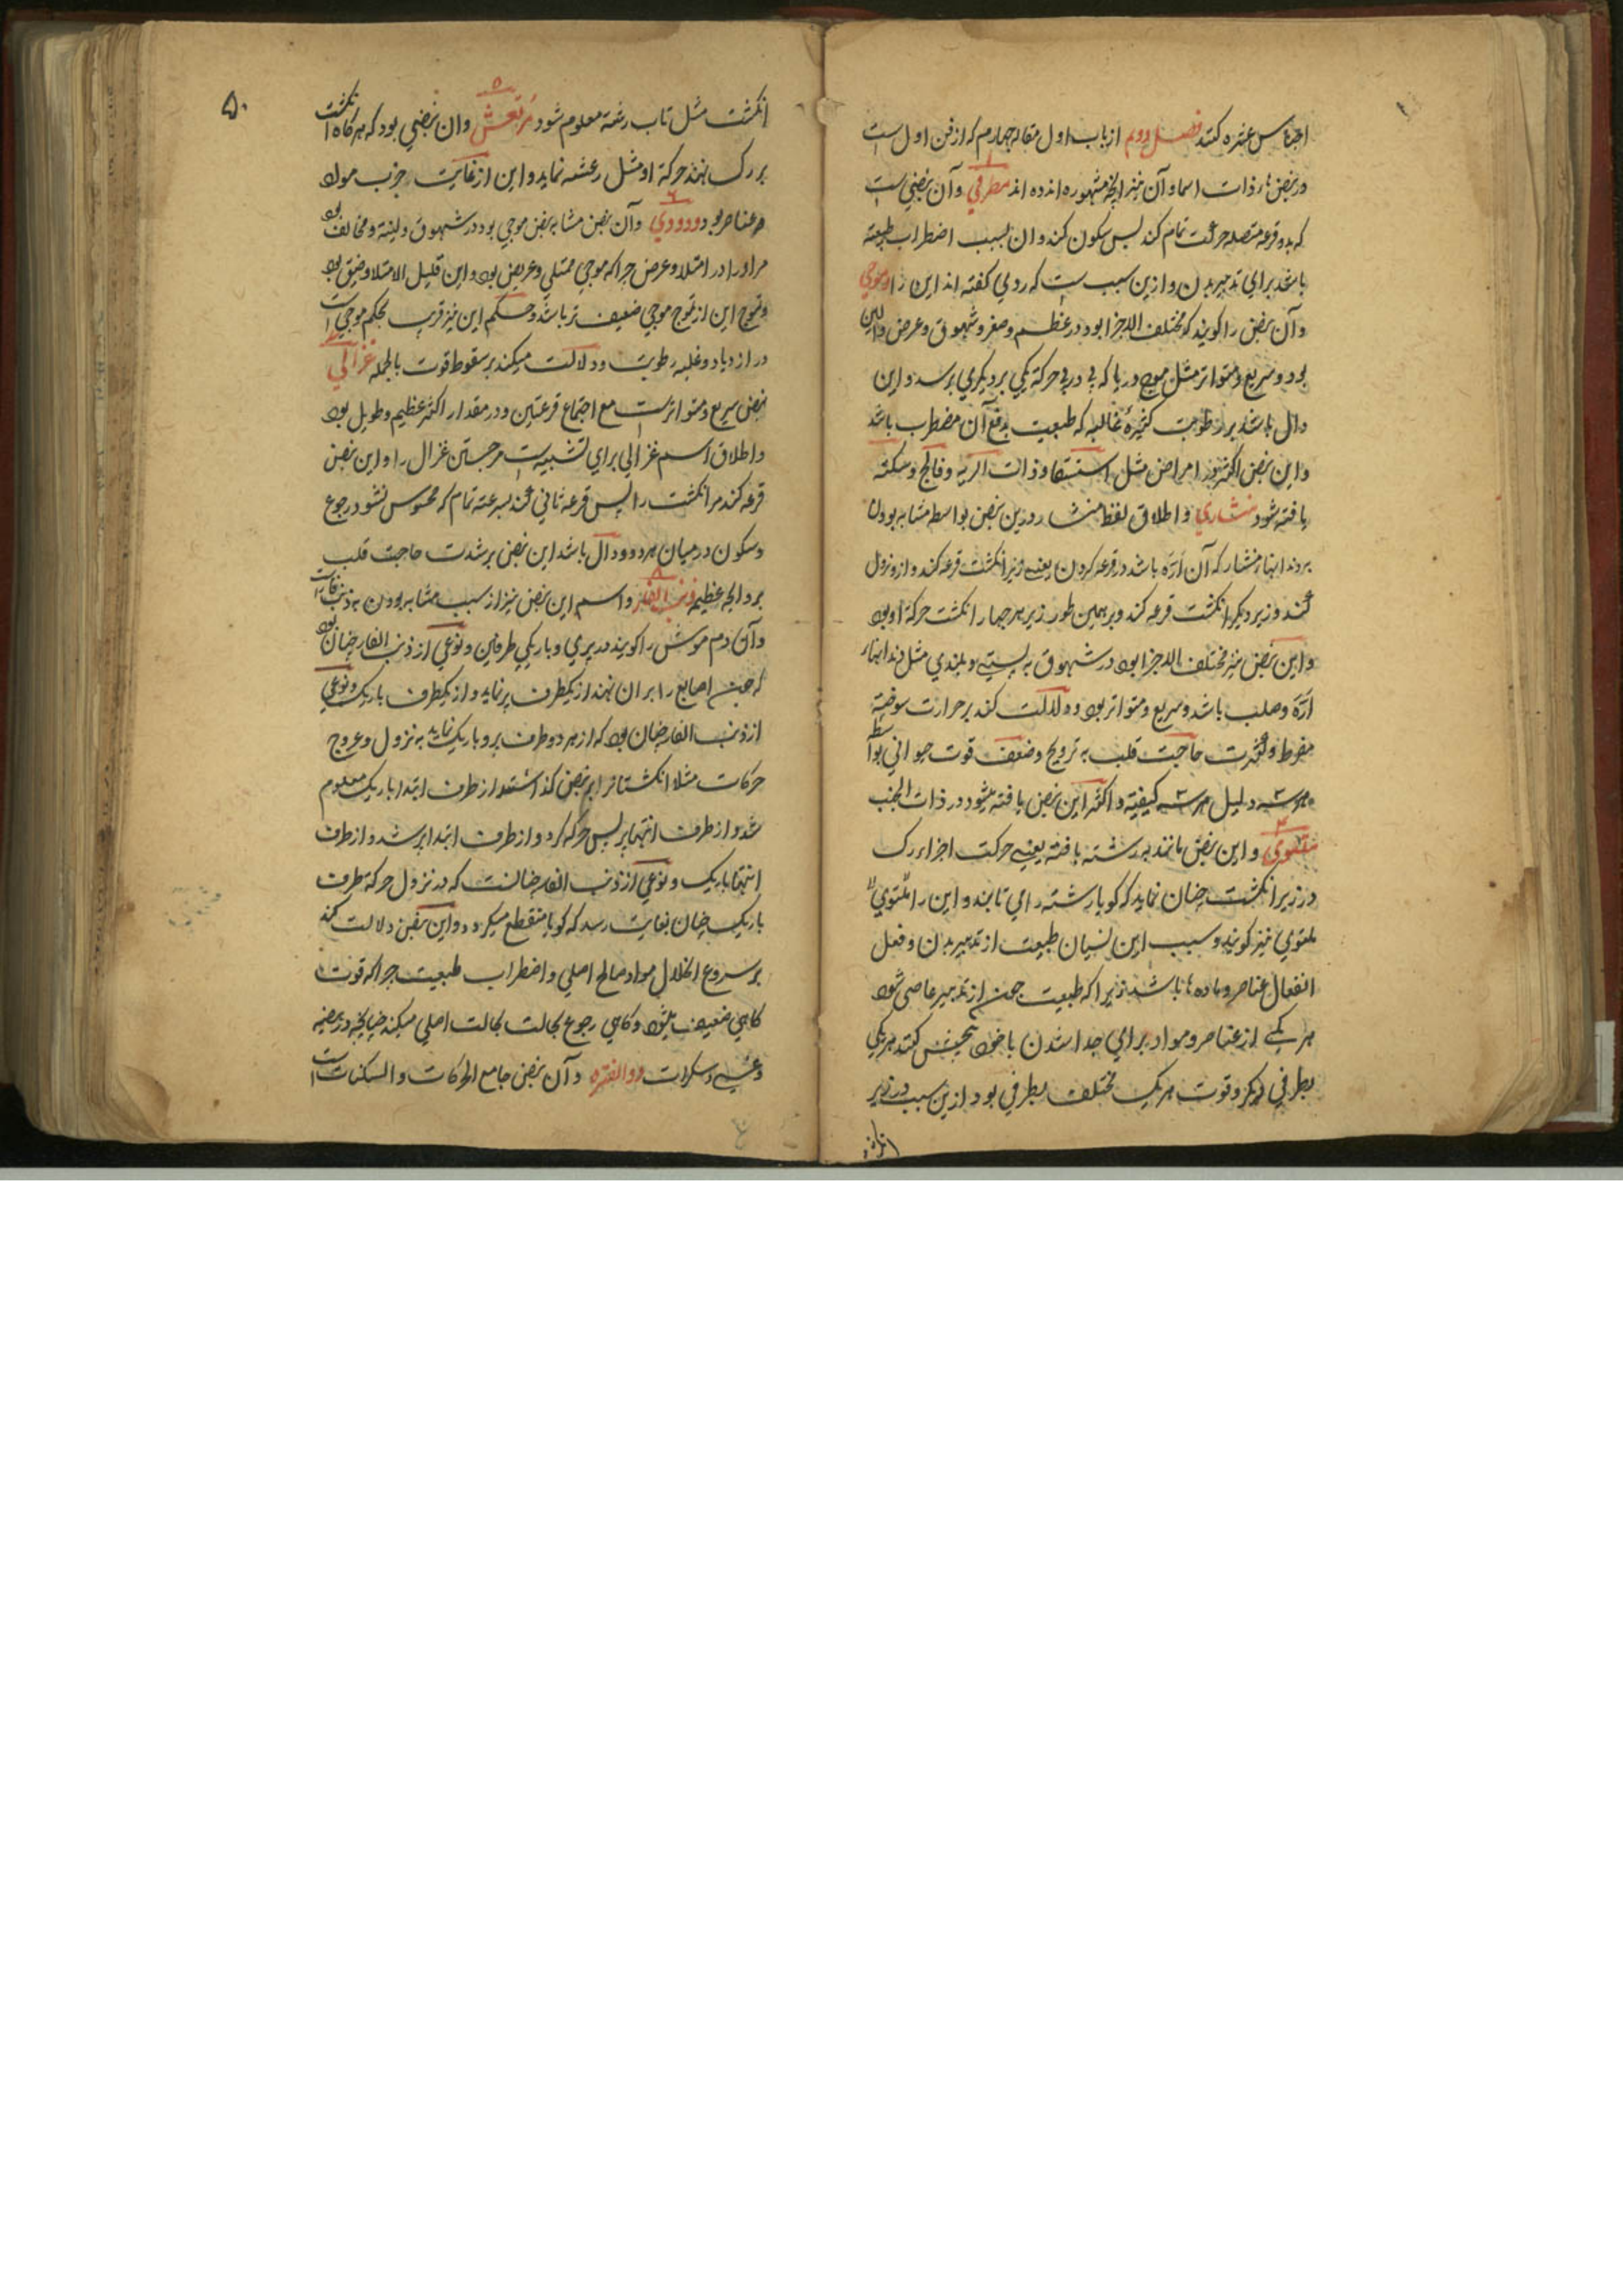 اجناس عشره کنند فصل دوم از باب اول مقاله چهارم که از فن اول است
در نبضهای ذات اسما و آن نیز انچه مشهوره اند ده اند مطرقی و آن نبضی است
که بدو قرعه متصله حرکت تمام کند پس سکون کند و ان بسبب اضطراب طبیعة
باشد برای تدبیر بدن و ازین سبب ست که ردی گفته اند این را موجی
و آن نبض را کویند که مختلف الاجزا بود در عظم و صغر و شهوق و عرض و لین
بود و سریع و متواتر مثل موج دریا که پی در پی حرکة یکی بر دیکری برسد و این
دال باشد بر رطوبت کثیرهٔ غالبه که طبیعت بدفع آن مضطرب باشد
و این نبض اکثر در امراض مثل استسقا و ذات الریه و فالج و سکته
یافته شود منشاری و اطلاق لفظ منشار درین نبض بواسطه مشابه بودن
بدندانهاء منشار که آن ارّه باشد در قرعه کردن یعنے زیر انکشت قرعه کند و ازو نزول
کند و زیر دیکر انکشت قرعه کند و بر همین طور زیر هر چهار انکشت حرکة او بود
و این نبض نیز مختلف الاجزا بود در شهوق به پستے و بلندی مثل دندانهاء
ارّه و صلب باشد و سریع و متواتر بود و دلالت کند بر حرارت سوخته
مفرط و شدت حاجت قلب به ترویح و ضعف قوت حیوانی بواسطه
دلیل کیفیته و اکثر این نبض یافته میشود در ذات الجنب
و این نبض مانند بود رشته بافته یعنے حرکت اجزاء رک
در زیر انکشت چنان نماید که کویا رشته را می تابند و این را ملتوی
ملتوی نیز کویند و سبب این نسیان طبیعت از تدبیر بدن و فعل
انفعال عناصر و ماده ها باشد زیرا که طبیعت چون از تدبیر عاصی شود
هر یکے از عناصر و مواد برای جدا شدن با خود کنند هر یکی
بطرفی دیکر و قوت هر یک مختلف بطرفی بود ازین سبب در زیر
انکشت
۵۰
انکشت مثل تاب رشته معلوم شود مرتعش وان نبضی بود که هر کاه انکشت
بر رک نهند حرکة او مثل رعشه نماید و این از غایت حرب مواد
و عناصر بود دودی و آن نبض مشابه نبض موجی بود در شهوق و لینة و مخالف بود
مر او را در امتلا و عرض چرا که موجی ممتلی و عریض بود و این قلیل الامتلا و ضیق بود
و تموج این از تموج موجی ضعیف تر باشد و حکم این نیز قریب بحکم موجی است
در ازدیاد و غلبه رطوبت و دلالت میکند بر سقوط قوت بالجمله غزالی
نبض سریع و متواترست مع اجتماع قرعتین و در مقدار اکثر عظیم و طویل بود
و اطلاق اسم غزالی برای تشبیه ست مر جستن غزال را و این نبض
قرعه کند مر انکشت را پس قرعه ثانی کند بسرعته تمام که محسوس نشود رجوع
و سکون در میان هر دو و دال باشد این نبض بر شدت حاجت قلب
بر وایحه عظیمه ذنب الفار و اسم این نبض نیز از سبب مشابه بودن به ذنب فار است
و آن دم موش را کویند در پری و باریکی طرفین و نوعی از ذنب الفار چنان بود
که چون اصابع را بر ان نهند از یکطرف پر نماید و از یکطرف باریک و نوعی
از ذنب الفار چنان بود که از هر دو طرف پر و باریک نماید به نزول و عروج
حرکات مثلا انکشتانرا بر نبض کذاشتند از طرف ابتدا باریک معلوم
شد و از طرف انتها پر پس حرکة کرد و از طرف ابتدا پر شد و از طرف
انتها باریک و نوعی از ذنب الفار چنانست که در نزول حرکة طرف
باریک چنان بغایت رسد که کویا منقطع میکردد و این نبض دلالت کند
بر سروع انحلال مواد صالح اصلی و اضطراب طبیعت چرا که قوت
کاهی ضعیف میشود و کاهی رجوع بحالت بحالت اصلی میکند چنانچه در
و غشی و سکرات ذو الفتره و آن نبض جامع الحرکات و السکنات است